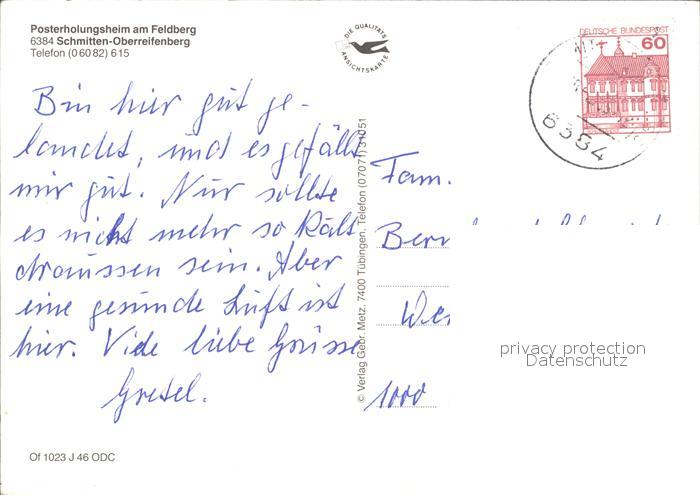 Posterholungsheim am Feldberg
6384 Schmitten-Oberreifenberg
Telefon (0 60 82) 615
DIE QUALITÄTS
ANSICHTSKARTE
DEUTSCHE BUNDESPOST
60
6384
Bin hier gut ge-
landet, und es gefällt
mir gut. Nur sollte
es nicht mehr so kalt
draussen sein. Aber
eine gesunde Luft ist
hier. Viele liebe Grüsse
Gretel.
© Verlag Gebr. Metz, 7400 Tübingen, Telefon (07071) 31051
Fam.
1000
privacy protection
Datenschutz
Of 1023 J 46 ODC